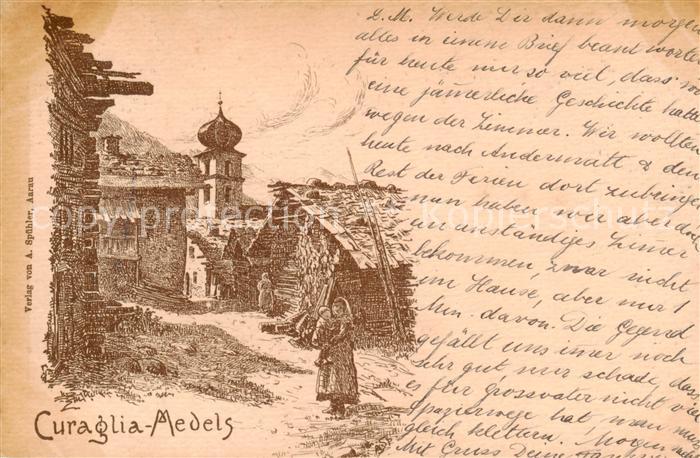 L. M. Werde Dir dann morgen
alles in einem Brief beantworten
für heute nur so viel, dass wir
eine jämerliche Geschichte hatten
wegen der Zimmer. Wir wollten
heute nach Andermatt & den
Rest der Ferien dort zubringen
nun haben wir aber doch
ein anständiges Zimer
bekommen, zwar nicht
im Hause, aber nur 1
Min. davon. Die Gegend
gefällt uns imer noch
sehr gut nur schade, dass
es für grossvater nicht
Spazierwege hat, man muss
gleich klettern. Morgen
Mit Gruss Deine
Verlag von A. Spühler, Aarau
Curaglia-Medels
copyright Kopierschutz